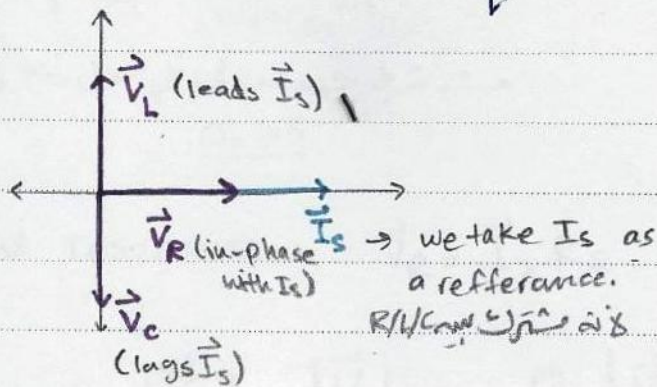 V_L (leads I_s)
V_R (in-phase with I_s)
I_s → we take I_s as
a refferance.
لأنه مشترك بين R/L/C
V_c
(lags I_s)